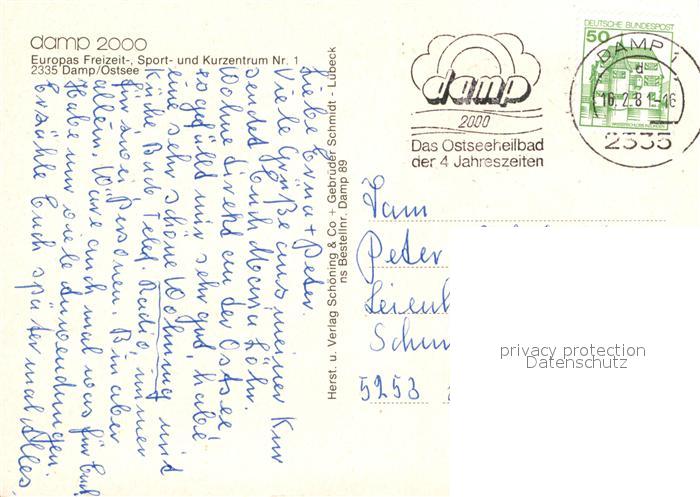 damp 2000
Europas Freizeit-, Sport- und Kurzentrum Nr. 1
2335 Damp/Ostsee
Liebe Erna + Peter.
Viele Grüße aus meiner Kur
sendet Euch Mama Höhr.
Wohne direkt an der Ostsee
es gefällt mir sehr gut, habe
eine sehr schöne Wohnung mit
Küche Bad Telef. Radio, immer
für zwei Personen. Bin aber
allein. Wäre auch mal was für Euch
Habe nur viele Anwendungen.
Erzähle Euch später mal Alles.
Herst. u. Verlag Schöning & Co + Gebrüder Schmidt - Lübeck
ns Bestellnr. Damp 89
damp
2000
Das Ostseeheilbad
der 4 Jahreszeiten
DEUTSCHE BUNDESPOST
50
DAMP 1
d
16.2.81-16
2335
Fam
Peter
5253
privacy protection
Datenschutz